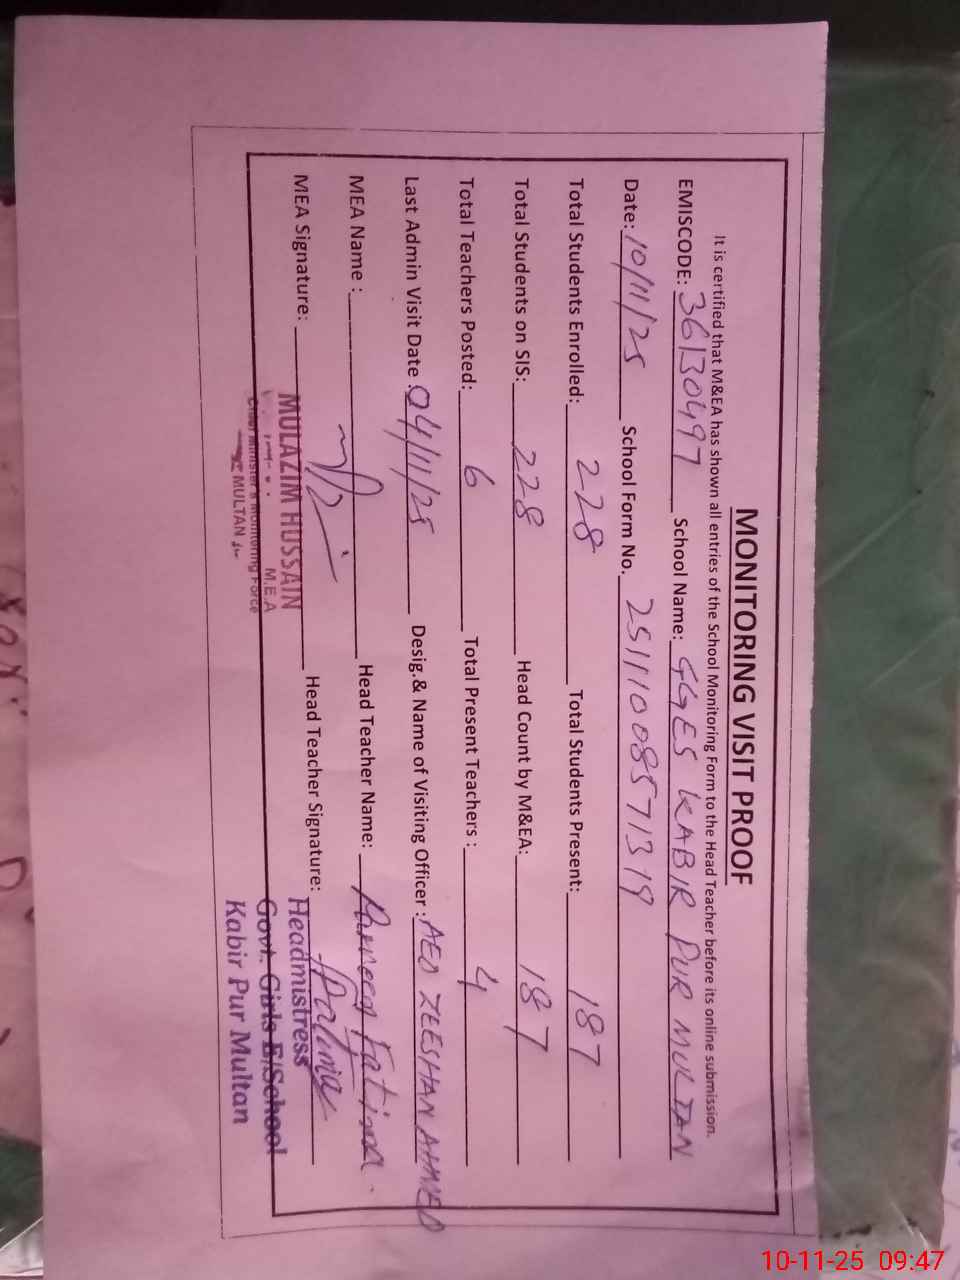 MONITORING VISIT PROOF
It is certified that M&EA has shown all entries of the School Monitoring Form to the Head Teacher before its online submission.
EMISCODE: 36130497 School Name: GGES KABIR PUR MULTAN
Date: 10/11/25 School Form No. 25111008571319
Total Students Enrolled: 228 Total Students Present: 187
Total Students on SIS: 228 Head Count by M&EA: 187
Total Teachers Posted: 6 Total Present Teachers : 4
Last Admin Visit Date : 04/11/25 Desig.& Name of Visiting Officer : AEO ZEESHAN AHMED
MEA Name : Head Teacher Name: Fatima
MEA Signature: Head Teacher Signature: Fatima
MULAZIM HUSSAIN
M.E.A
Chief Minister's Monitoring Force
MULTAN
Headmistress
Govt. Girls E/School
Kabir Pur Multan
10-11-25 09:47